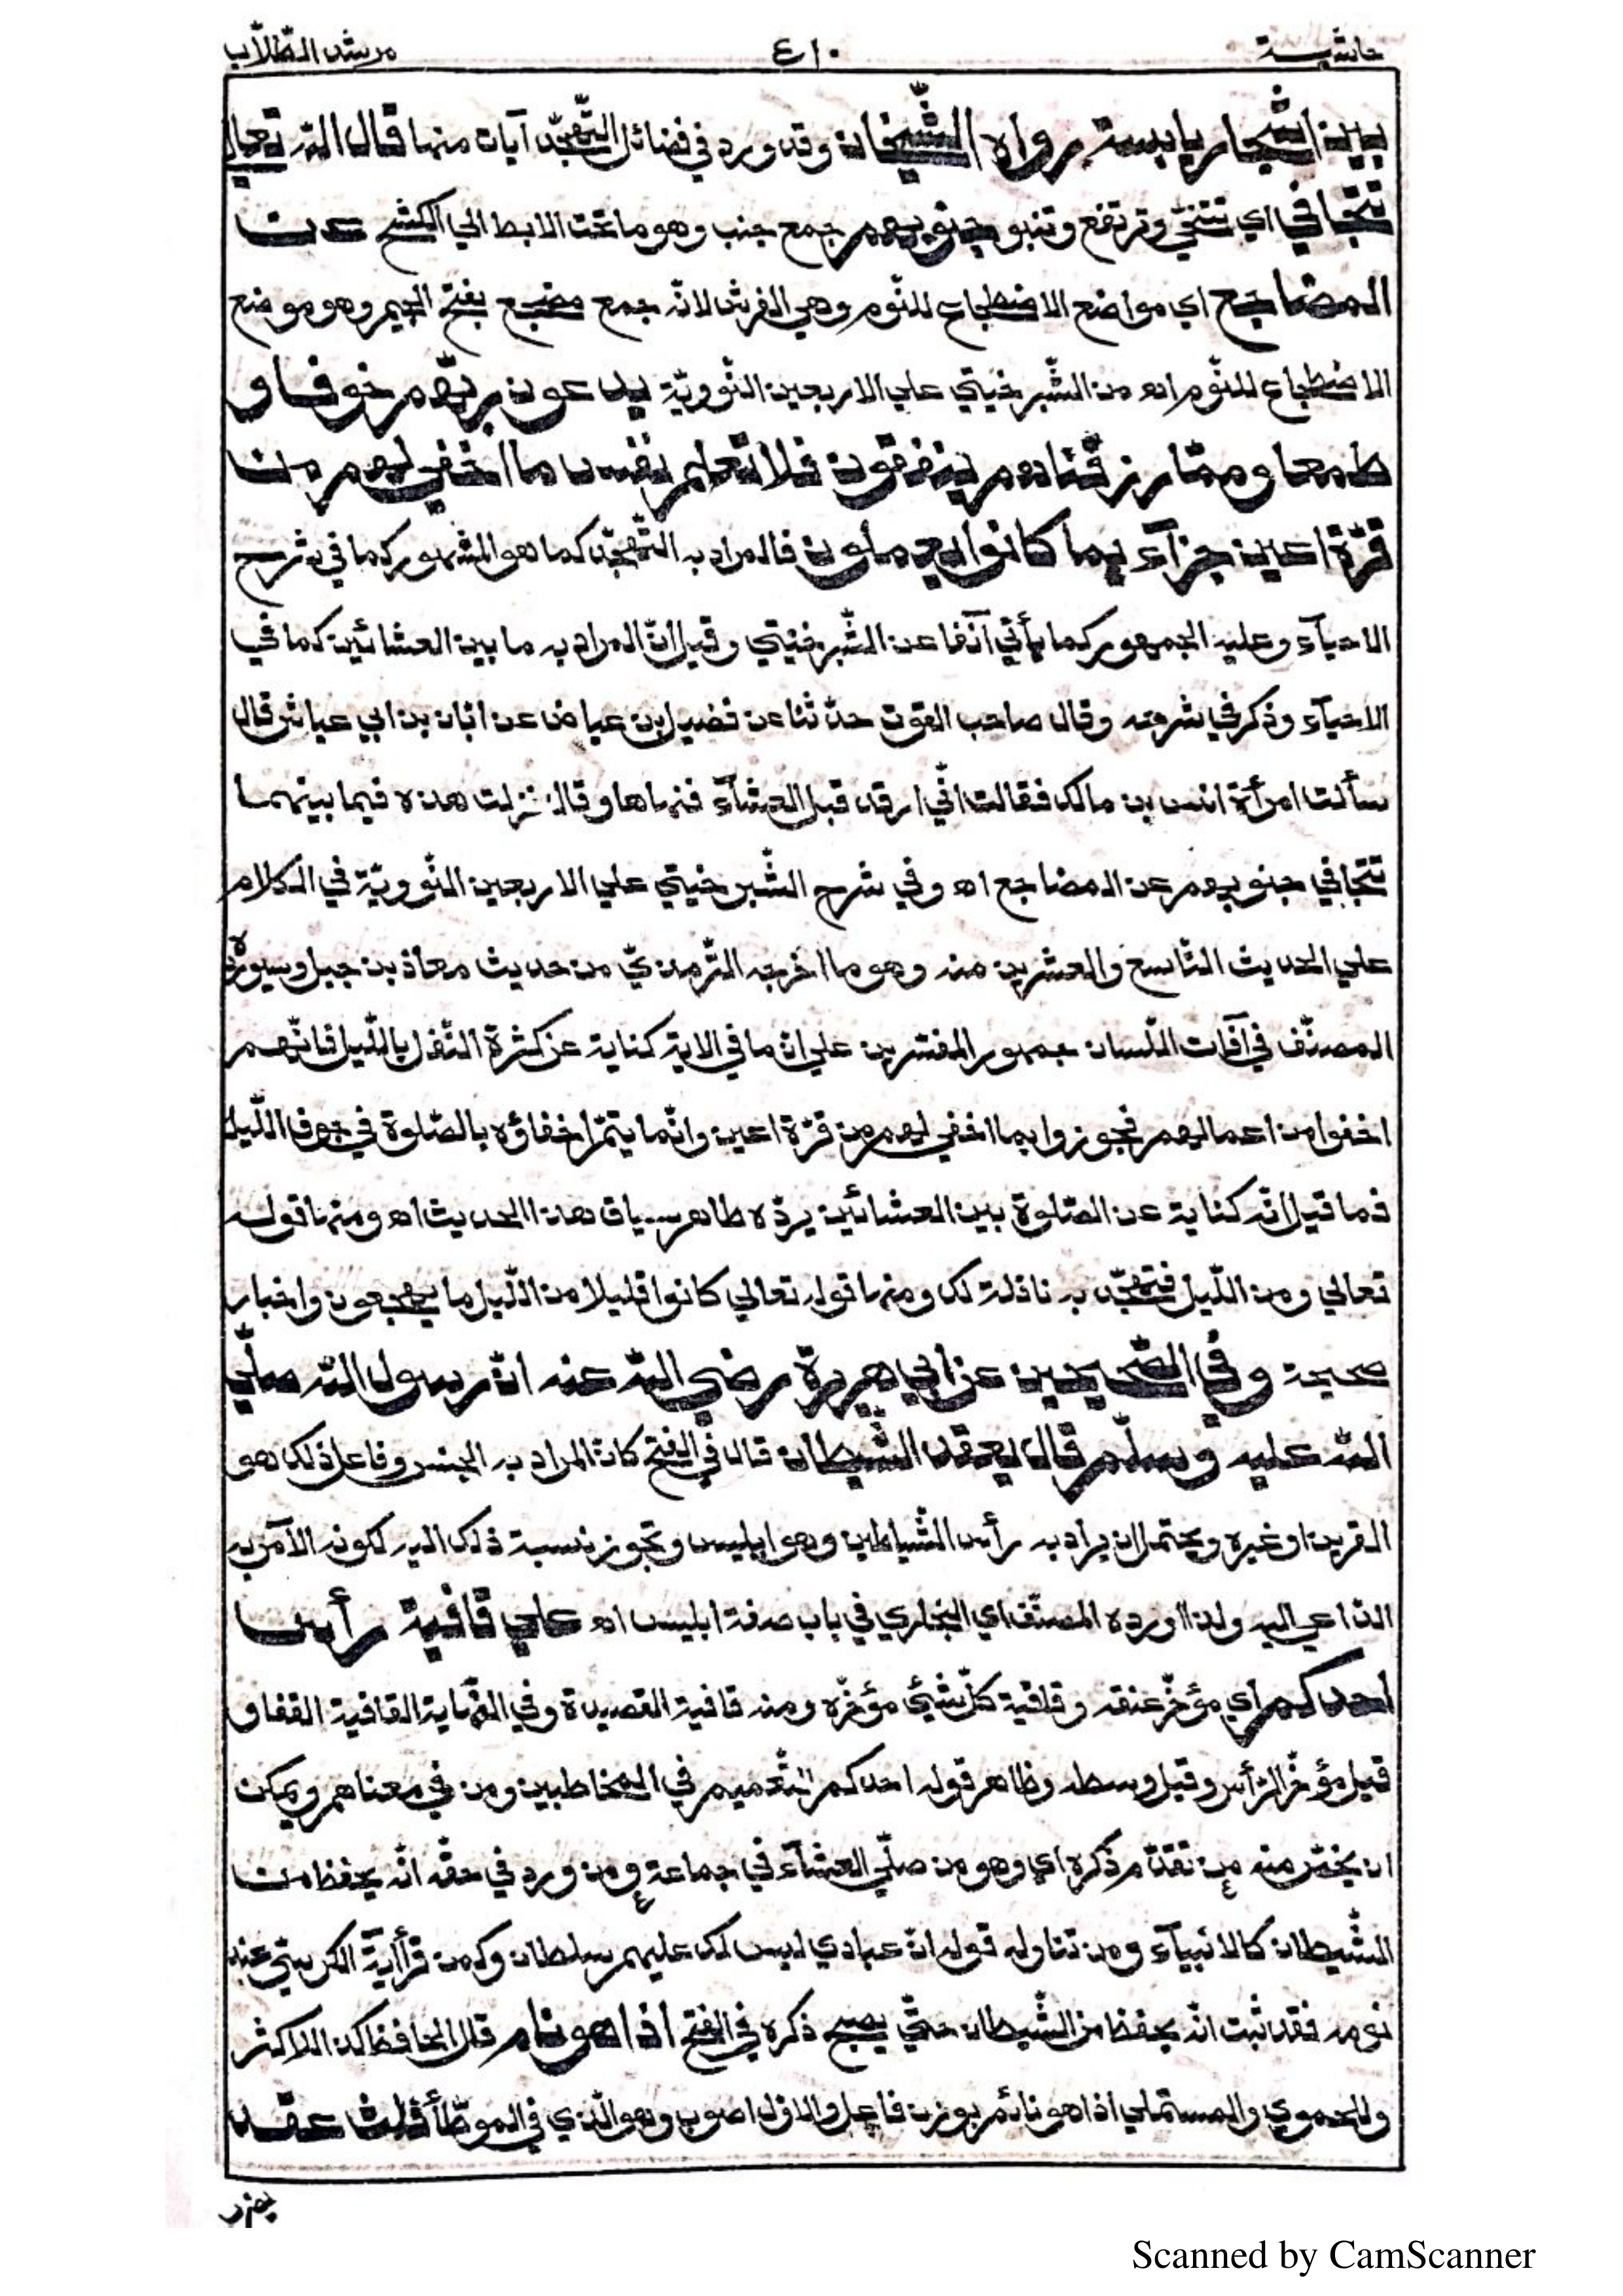 حاشية ٤١٠ مرشد الطّلّاب
بين اشجار يابسة رواه الشّيخان وقد ورد في فضائل التّهجّد آيات منها قال اللّه تعالي
تتجافي اي تتنحّي وترتفع وتنبو جنوبهم جمع جنب وهو ما تحت الابط الي الكشح عن
المضاجع اي مواضع الاضطجاع للنّوم وهي الفرش لانّه جمع مضجع بفتح الجيم وهو موضع
الاضطجاع للنّوم اه من الشّبرخيتي علي الاربعين النّوويّة يدعون ربّهم خوفا و
طمعا وممّا رزقناهم ينفقون فلا تعلم نفس ما اخفي لهم من
قرّة اعين جزآء بما كانوا يعملون فالمراد به التّهجّد كما هو المشهور كما في شرح
الاحيآء وعليه الجمهور كما يأتي آنفا عن الشّبرخيتي وقيل انّ المراد به ما بين العشائين كما في
الاحيآء وذكر في شرحه وقال صاحب القوت حدّثنا عن فضيل بن عياض عن ابان بن ابي عياش قال
سألت امرأة انس بن مالك فقالت انّي ارقد قبل العشآء فنهاها وقال نزلت هذه فيما بينهما
تتجافي جنوبهم عن المضاجع اه وفي شرح الشّبرخيتي علي الاربعين النّوويّة في الكلام
علي الحديث التّاسع والعشرين منه وهو ما اخرجه التّرمذيّ من حديث معاذ بن جبل وسيورده
المصنّف في آفات اللّسان جمهور المفسّرين علي انّ ما في الاية كناية عن كثرة التّنفّل باللّيل فانّهم
اخفوا من اعمالهم فجوزوا بما اخفي لهم من قرّة اعين وانّما يتمّ اخفاؤه بالصّلوة في جوف اللّيل
فما قيل انّه كناية عن الصّلوة بين العشائين يردّه ظاهر سياق هذا الحديث اه ومنها قوله
تعالي ومن اللّيل فتهجّد به نافلة لك ومنها قوله تعالي كانوا قليلا من اللّيل ما يهجعون واخبار
صحيحة وفي الصّحيحين عن ابي هريرة رضي اللّه عنه انّ رسول اللّه صلّي
اللّه عليه وسلّم قال يعقد الشّيطان قال في الفتح كانّ المراد به الجنس وفاعل ذلك هو
القرين او غيره ويحتمل ان يراد به رأس الشّياطين وهو ابليس وتجوز نسبة ذلك اليه لكونه الآمر به
الدّاعي اليه ولذا اورده المصنّف اي البخاري في باب صفة ابليس اه علي قافية رأس
احدكم اي مؤخّر عنقه وقافية كلّ شيئ مؤخّره ومنه قافية القصيدة وفي النّهاية القافية القفا و
قيل مؤخّر الرّأس وقيل وسطه وظاهر قوله احدكم التّعميم في المخاطبين ومن في معناهم ويمكن
ان يخصّ منه من تقدّم ذكره اي وهو من صلّي العشآء في جماعة ومن ورد في حقّه انّه يحفظ من
الشّيطان كالانبيآء ومن تناوله قوله انّ عبادي ليس لك عليهم سلطان وكمن قرأ آية الكرسيّ عند
نومه فقد ثبت انّه يحفظ من الشّيطان حتّي يصبح ذكره في الفتح اذا هو نام قال الحافظ كذا للاكثر
وللحموي والمستملي اذا هو نائم بوزن فاعل والاوّل اصوب وهو الّذي في الموطّأ ثلث عقد
Scanned by CamScanner